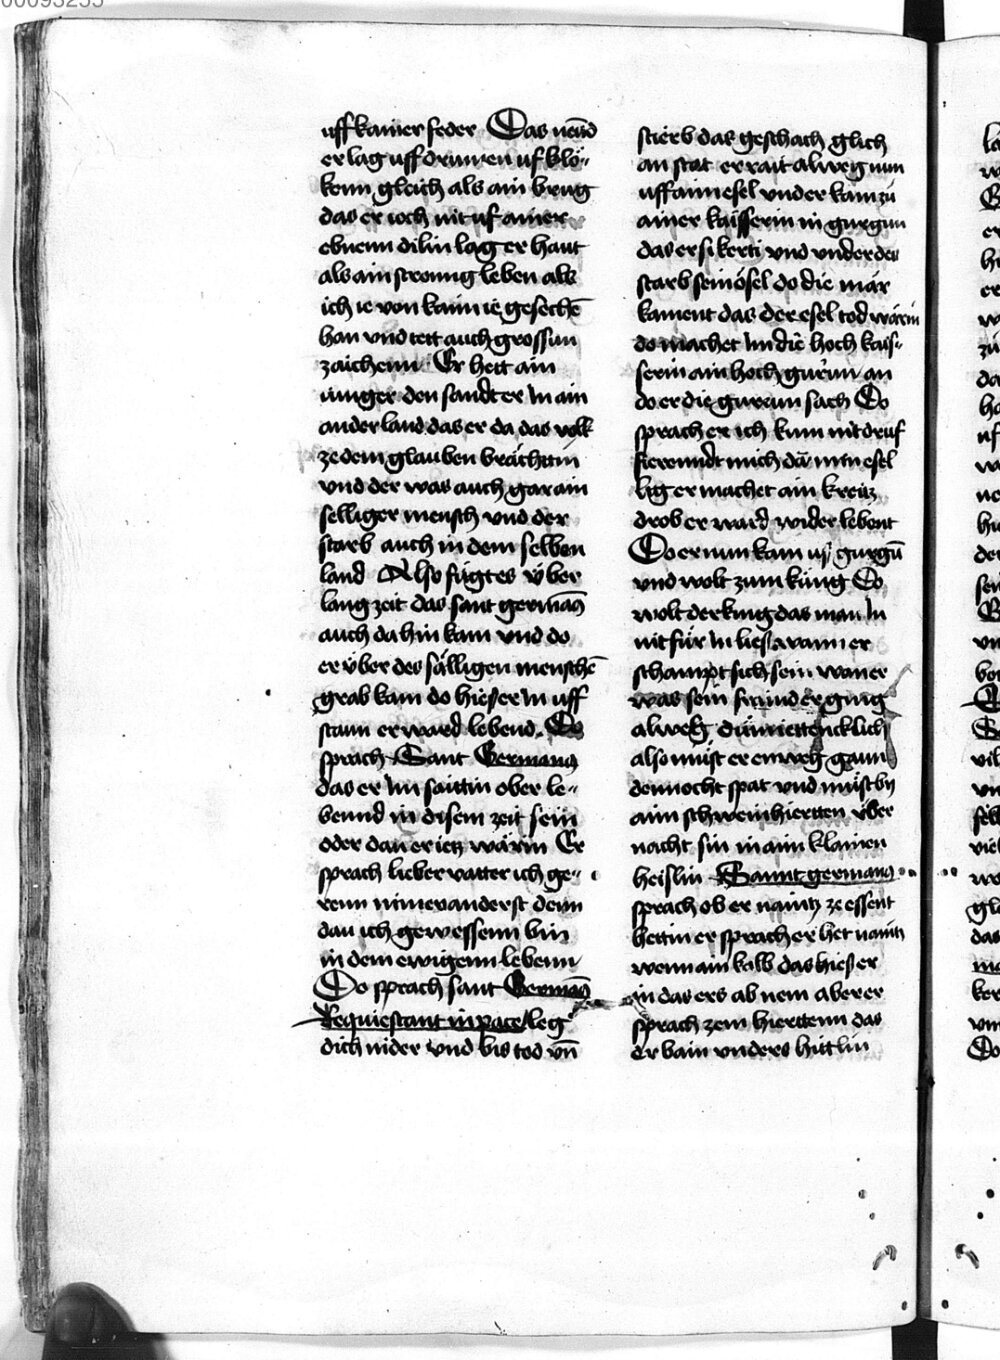 uff kainer feder Das nend
er lag uff drumen uf blö-
kenn gleich als ain brug
das er ioch nit uf ainer
ebnenn dilin lag er haut
als ain streinng leben als
ich ie von kaim ie gesechē
han vnd tett auch grossun
zaichenn Er hett ain
iunger den sandt er In ain
ander land das er da das volk
ze dem glauben brächttin
vnd der was auch gar ain
selliger mensch vnd der
starb auch in dem selben
land Also fügt es v̈ber
lang zeit das sant germāns
auch da hin kam vnd do
er v̈ber des sälligen menschē
grab kam do hies er In uff
stann er ward lebend. Do
sprach Sant Germanus
das er Im saittin ober le-
bennd in disem zeit sein
oder dan er ietz wärin Er
sprach lieber vatter ich ge-
renn nimer anderst denn
dan ich gewessenn bin
in dem ewigenn lebenn
Do sprach sant Germāns
Requiescant in pace leg
dich nider vnd bis tod vn̄
stierb das geschach glich
an stat er rait alweg nun
uff aim esel vnder kam zü
ainer kaisserin in gurgun
das er si kerti vnd vnder des
starb sein ösel do die mär
kament das der esel tod wärin
do machet Im die hoch kais-
serin ain hoch gurun an
do er die gurun sach Do
sprach er ich kum nit druf
fierenndt mich da min esel
lig er machet ain kreitz
drob er ward wider lebent
Do er nun kam in gurgū
vnd wolt zum küng Do
wolt der king das man In
nit für In lies wann er
schampt sich sein waner
was sein fründ er ging
alweg diemettencklich
also müst er enweg gann
dennocht spat vnd müst by
aim schwein hiertten v̈ber
nacht sin in aim klainen
heislin Sannt germans
sprach ob er naintz ze essent
hettin er sprach er het naintz
wenn ain kalb das hies er
in das ers ab nem aber er
sprach zem hierttenn das
er bain vnders hüttlin